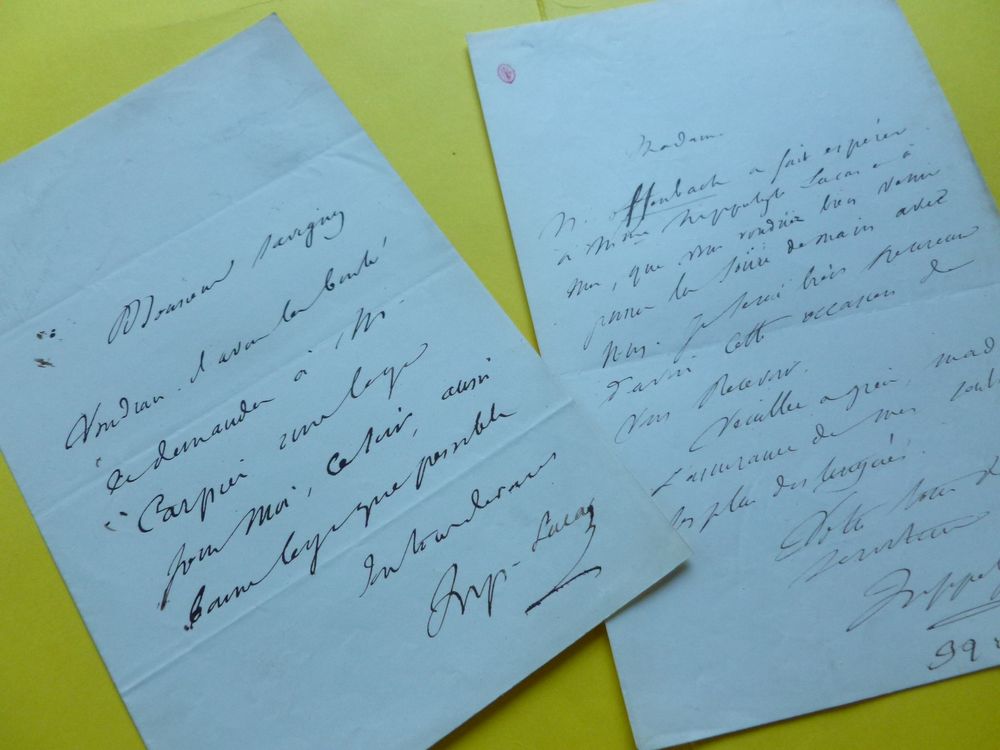 Monsieur Savigny
Voudrait-il avoir la bonté
de demander à Mr
Carpier une loge
pour moi, ce soir, aussi
bonne loge que possible
Hip. Lucas
Madame
M. Offenbach a fait espérer
à Mme Hippolyte Lucas et à
moi, que vous voudriez bien venir
passer la soirée demain avec
nous. Je serai très heureux
d'avoir cette occasion de
vous recevoir.
Veuillez agréer, mad
l'assurance de mes
les plus distingués.
Votre
serviteur
Hippol
99